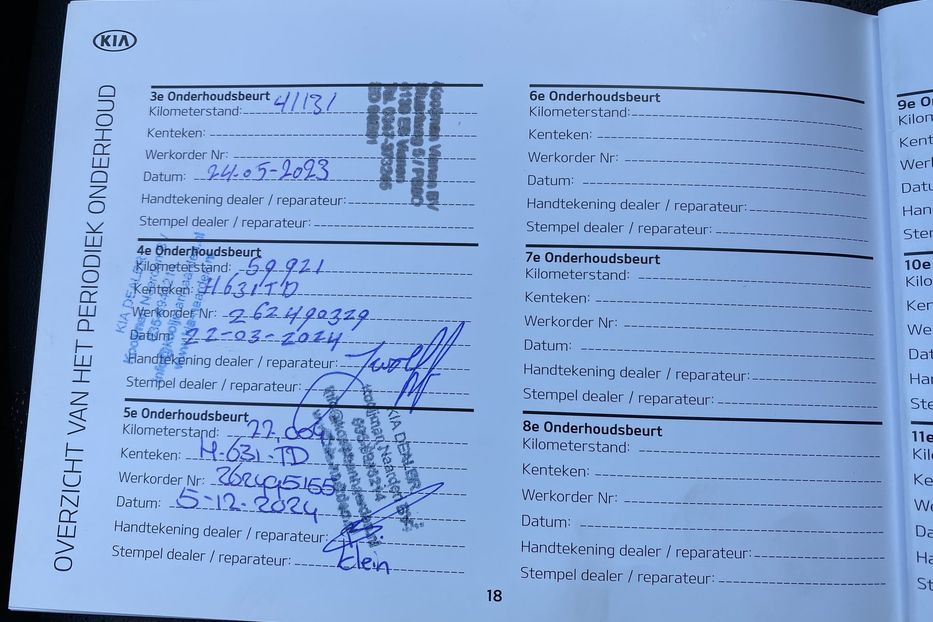 KIA
OVERZICHT VAN HET PERIODIEK ONDERHOUD
3e Onderhoudsbeurt
Kilometerstand: 41131
Kenteken:
Werkorder Nr:
Datum: 24-05-2023
Handtekening dealer / reparateur:
Stempel dealer / reparateur:
4e Onderhoudsbeurt
Kilometerstand: 59.921
Kenteken: H631TD
Werkorder Nr: 262490329
Datum: 22-03-2024
Handtekening dealer / reparateur:
Stempel dealer / reparateur:
KIA DEALER
5e Onderhoudsbeurt
Kilometerstand: 77.004
Kenteken: H-631-TD
Werkorder Nr: 262495165
Datum: 5-12-2024
Handtekening dealer / reparateur:
Stempel dealer / reparateur: Elein
KIA DEALER
Kooijman Naarden
6e Onderhoudsbeurt
Kilometerstand:
Kenteken:
Werkorder Nr:
Datum:
Handtekening dealer / reparateur:
Stempel dealer / reparateur:
7e Onderhoudsbeurt
Kilometerstand:
Kenteken:
Werkorder Nr:
Datum:
Handtekening dealer / reparateur:
Stempel dealer / reparateur:
8e Onderhoudsbeurt
Kilometerstand:
Kenteken:
Werkorder Nr:
Datum:
Handtekening dealer / reparateur:
Stempel dealer / reparateur:
18
9e On
Kilom
Kent
Werk
Datu
Han
Ster
10e
Kilo
Ken
We
Dat
Ha
Ste
11e
Kil
Ke
We
Da
Ha
St